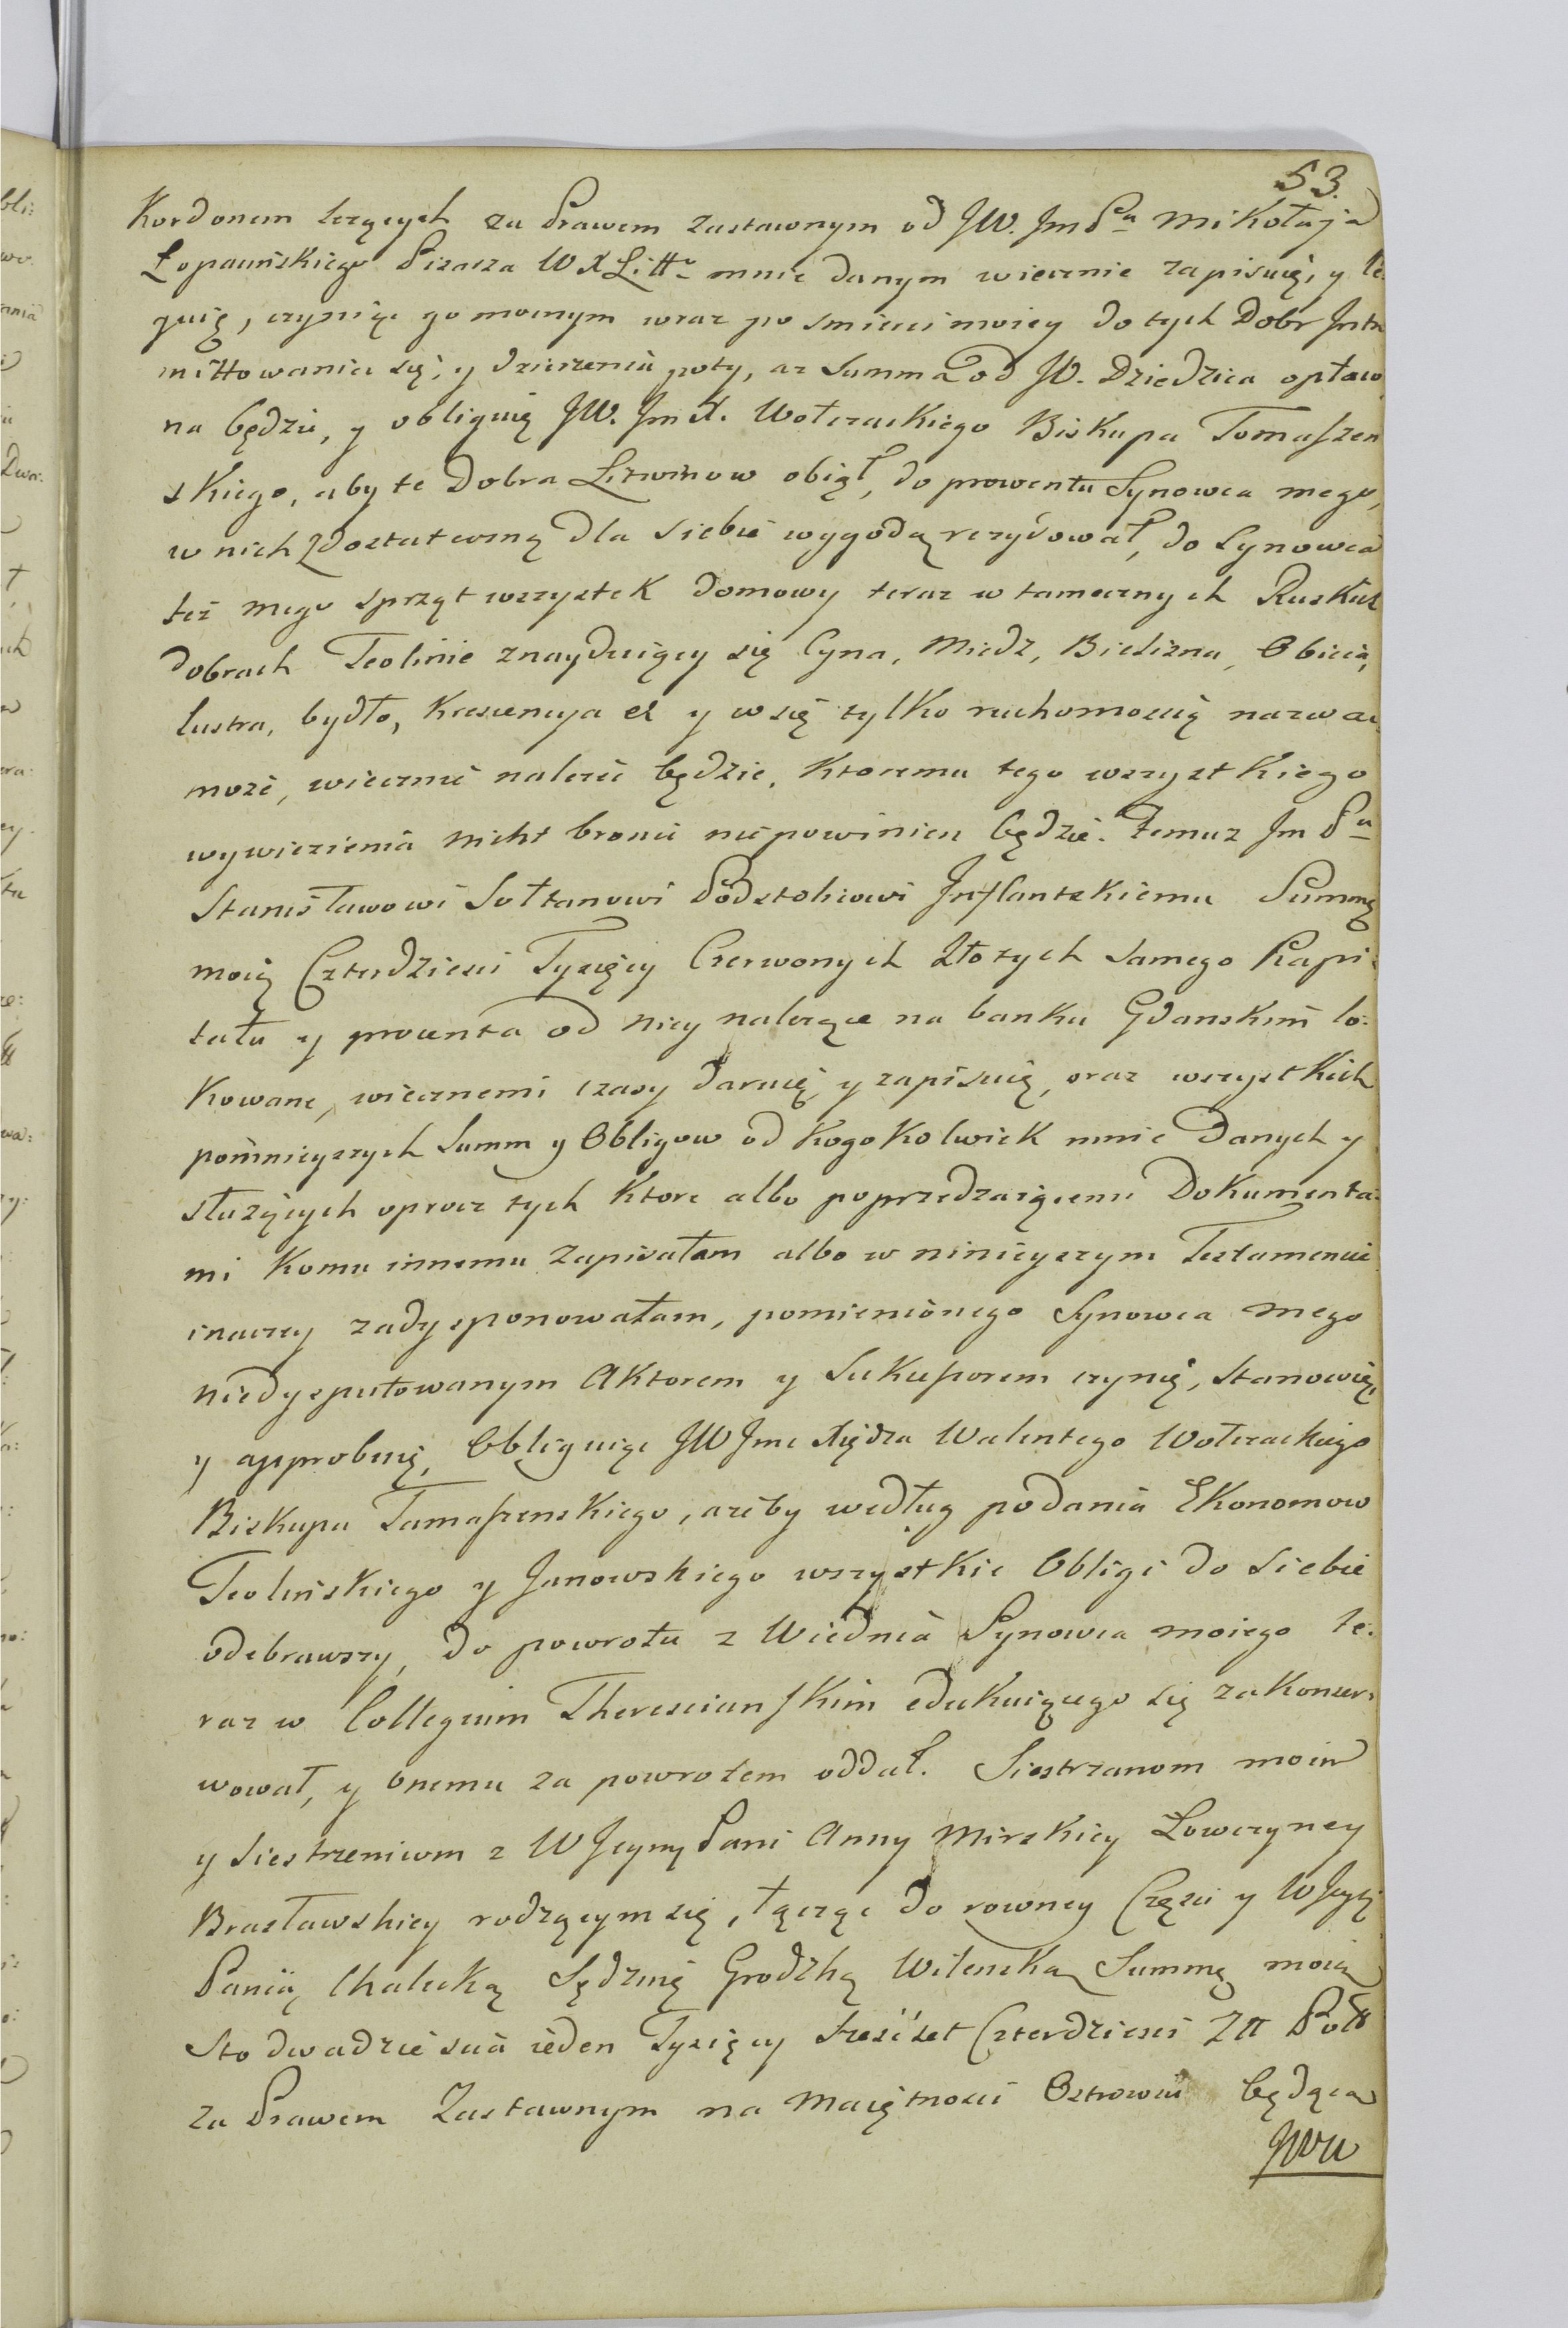 53.
Kordonem leżących za Prawem zastawnym od JW. Jm Pa Mikołaja
Łopacińskiego Pisarza W X Litt. mnie danym wiecznie zapisuię, y le-
guię, czyniąc go mocnym wraz po smierci moiey do tych Dobr Intro
mittowania się, y dzierzenia poty, az Summa od JW. Dziedzica opłaco
na będzie, y obliguię JW. Jm X. Wołczackiego Biskupa Tomaszen
skiego, aby te Dobra Litwinow obiął, do prowentu Synowca mego,
w nich z dostateczną dla siebie wygodą rezydował, do Synowca
też mego sprzęt wszystek domowy teraz w tamecznych Ruskich
dobrach Teolinie znayduiący się Cyna, Miedz, Bielizna, Obicia,
lustra, bydło, krescencya et y w się tylko ruchomoscią nazwać
może, wiecznie należeć będzie, Ktoremu tego wszystkiego
wywiezienia nicht bronić nie powinien będzie. Temuz Jm Pu
Stanisławowi Sołtanowi Podstoliowi Inflantskiemu Summę
moię Czterdziesci Tysięcy Czerwonych Złotych samego Kapi-
tału y procenta od niey nalezące na banku Gdanskim lo-
kowane, wiecznemi czasy daruię, y zapisuię, oraz wszystkich
pomnieyszych Summ y Obligow od kogokolwiek mnie danych y
służących oprocz tych ktore albo poprzedzaiącemi Dokumenta-
mi komu innemu zapisałam albo w ninieyszym Testamencie
inaczey zadysponowałam, pomienionego Synowca mego
niedysputowanym Aktorem y Sukcessorem czynię, stanowię,
y approbuię, Obliguiąc JW Jmc Xiędza Walentego Wołczackiego
Biskupa Tamaszenskiego, ażeby według podania Ekonomow
Teolińskiego y Janowskiego wszystkie Obligi do siebie
odebrawszy, do powrotu z Wiednia Synowca moiego te-
raz w Collegium Theresianskim edukuiącego się zakonser-
wował, y onemu za powrotem oddał. Siestrzanom moim
y siestrzenicom z W Jeymc Pani Anny Mirskiey Łowczyney
Brasławskiey rodzącym się, łącząc do rowney Części y W Jeyć
Panią Chalecką Sędzinę Grodzką Wilenską Summę moią
Sto dwadziescia ieden Tysięcy szescset Czterdziesci Złł Poll
za Prawem Zastawnym na Maiętnosci Ostrowiu będąca
JWu